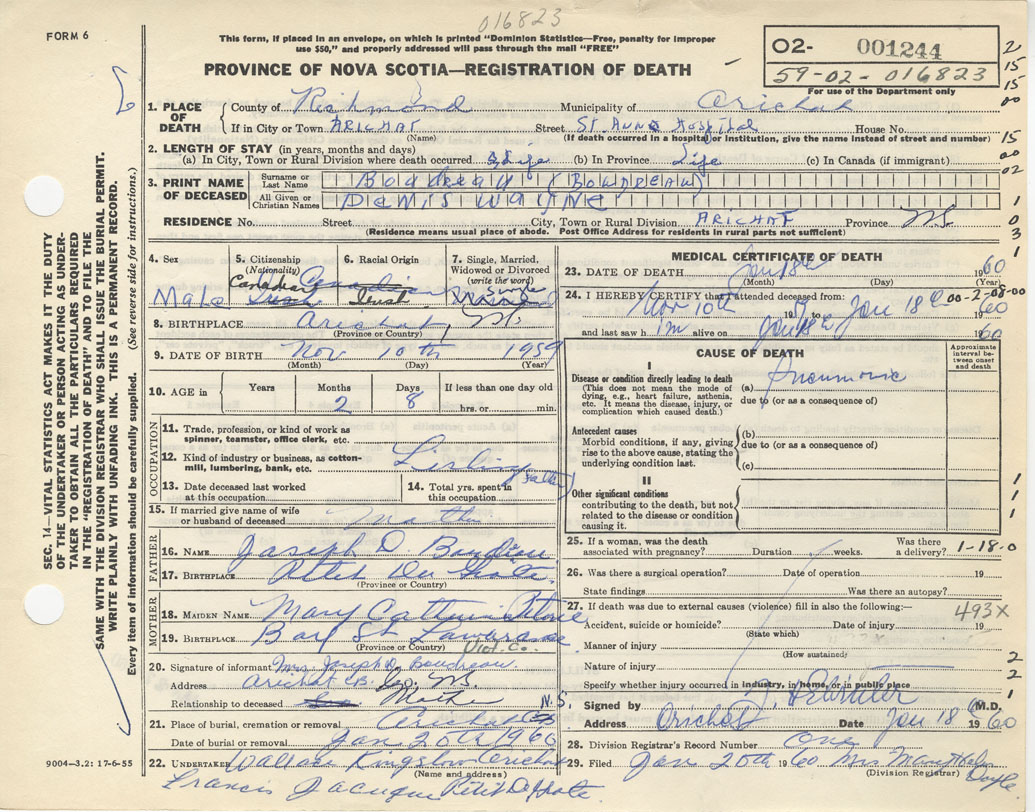 016823
FORM 6
This form, if placed in an envelope, on which is printed "Dominion Statistics—Free, penalty for improper
use $50," and properly addressed will pass through the mail "FREE"
PROVINCE OF NOVA SCOTIA—REGISTRATION OF DEATH
02- 001244
59-02-016823
For use of the Department only
1. PLACE OF DEATH County of Richmond Municipality of Arichat
If in City or Town ARICHAT Street St Anns Hospital House No.
(Name) (If death occurred in a hospital or institution, give the name instead of street and number)
2. LENGTH OF STAY (in years, months and days)
(a) In City, Town or Rural Division where death occurred Life (b) In Province Life (c) In Canada (if immigrant)
3. PRINT NAME OF DECEASED Surname or Last Name Boudreau (BOUDREAU)
All Given or Christian Names DENIS WAYNE
RESIDENCE No. Street City, Town or Rural Division ARICHAT Province N.S.
(Residence means usual place of abode. Post Office Address for residents in rural parts not sufficient)
4. Sex Male
5. Citizenship (Nationality) Canadian
6. Racial Origin Irish
7. Single, Married, Widowed or Divorced (write the word) Single
8. BIRTHPLACE Arichat, N.S.
(Province or Country)
9. DATE OF BIRTH Nov 10th 1959
(Month) (Day) (Year)
10. AGE in Years Months 2 Days 8 If less than one day old hrs. or min.
OCCUPATION
11. Trade, profession, or kind of work as spinner, teamster, office clerk, etc.
12. Kind of industry or business, as cotton-mill, lumbering, bank, etc.
13. Date deceased last worked at this occupation
14. Total yrs. spent in this occupation
15. If married give name of wife or husband of deceased
FATHER
16. NAME Joseph D. Boudreau
17. BIRTHPLACE
(Province or Country)
MOTHER
18. MAIDEN NAME Mary Catherine
19. BIRTHPLACE Bay St Lawrence Vict. Co.
(Province or Country)
20. Signature of informant Mrs. Joseph D. Boudreau
Address Arichat C.B. N.S.
Relationship to deceased Mother
21. Place of burial, cremation or removal Arichat N.S.
Date of burial or removal Jan 20th 1960
22. UNDERTAKER Wallace Kingston Arichat
(Name and address)
Francis
MEDICAL CERTIFICATE OF DEATH
23. DATE OF DEATH Jan 18th 1960
(Month) (Day)
24. I HEREBY CERTIFY that I attended deceased from:
Nov 10th 19 to Jan 18 1960
00-2-08-00
and last saw him alive on Jan 18 1960
CAUSE OF DEATH
Approximate interval between onset and death
I
Disease or condition directly leading to death
(This does not mean the mode of dying, e.g., heart failure, asthenia, etc. It means the disease, injury, or complication which caused death.)
(a) Pneumonia
due to (or as a consequence of)
Antecedent causes
Morbid conditions, if any, giving rise to the above cause, stating the underlying condition last.
(b)
due to (or as a consequence of)
(c)
II
Other significant conditions
contributing to the death, but not related to the disease or condition causing it.
25. If a woman, was the death associated with pregnancy? Duration weeks. Was there a delivery? 1-18-0
26. Was there a surgical operation? Date of operation 19
State findings Was there an autopsy?
27. If death was due to external causes (violence) fill in also the following:— 493X
Accident, suicide or homicide? Date of injury 19
(State which)
Manner of injury
(How sustained)
Nature of injury
Specify whether injury occurred in industry, in home, or in public place
Signed by M.D.
Address Arichat Date Jan 18 1960
28. Division Registrar's Record Number One
29. Filed Jan 20th 1960 Mrs Doyle
(Division Registrar)
SEC. 14—VITAL STATISTICS ACT MAKES IT THE DUTY
OF THE UNDERTAKER OR PERSON ACTING AS UNDER-
TAKER TO OBTAIN ALL THE PARTICULARS REQUIRED
IN THE "REGISTRATION OF DEATH" AND TO FILE THE
SAME WITH THE DIVISION REGISTRAR WHO SHALL ISSUE THE BURIAL PERMIT.
WRITE PLAINLY WITH UNFADING INK. THIS IS A PERMANENT RECORD.
Every item of information should be carefully supplied. (See reverse side for instructions.)
9004—3.2: 17-6-55